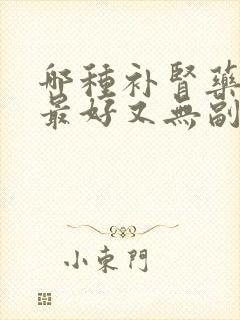 哪種补腎藥
最好又無副
小東門